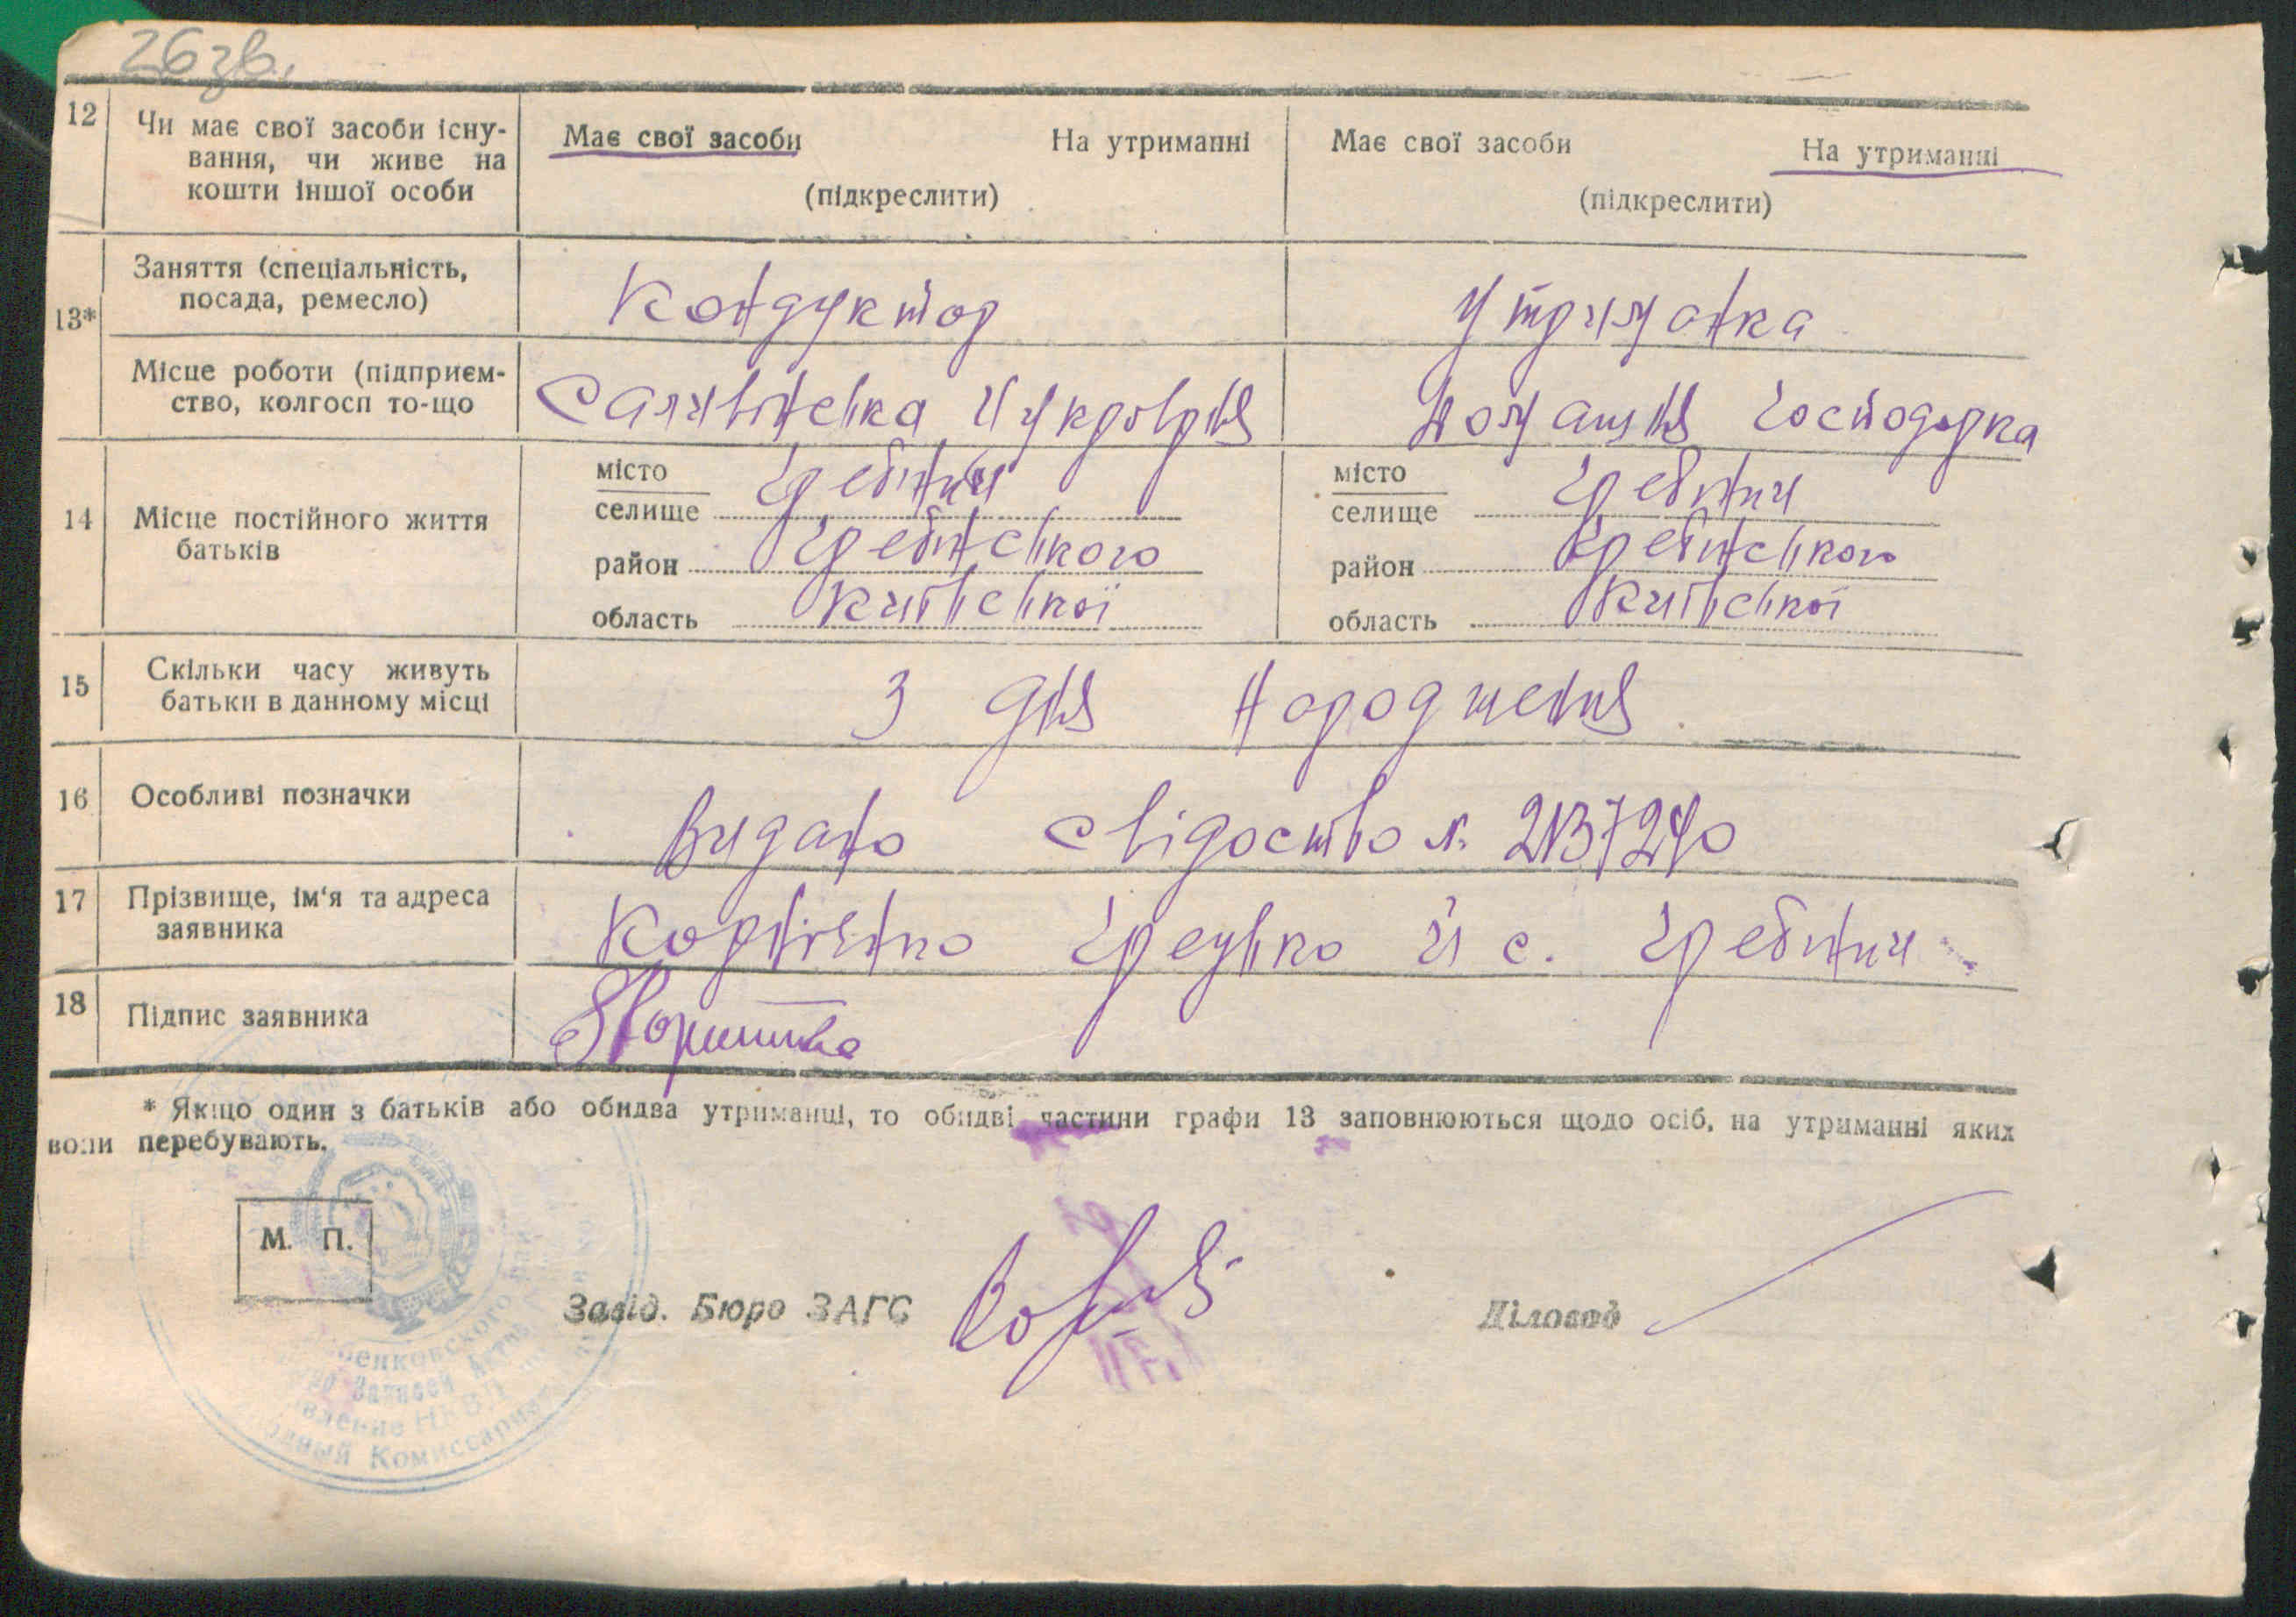 26 зв.
12 Чи має свої засоби існу-
вання, чи живе на
кошти іншої особи
Має свої засоби На утриманні
(підкреслити)
Має свої засоби На утриманні
(підкреслити)
13* Заняття (спеціальність,
посада, ремесло)
Кондуктор
Утриманка
Місце роботи (підприєм-
ство, колгосп то-що
Саливінська Цукровня
Домашня господарка
14 Місце постійного життя
батьків
місто
селище Гребінки
район Гребінського
область Київської
місто
селище Гребінки
район Гребінського
область Київської
15 Скільки часу живуть
батьки в данному місці
З дня народження
16 Особливі позначки
Видано свідоство №
17 Прізвище, ім'я та адреса
заявника
Корнієнко с. Гребінки
18 Підпис заявника
* Якщо один з батьків або обидва утриманці, то обидві частини графи 13 заповнюються щодо осіб, на утриманні яких
вони перебувають.
М. П.
Завід. Бюро ЗАГС
Діловод